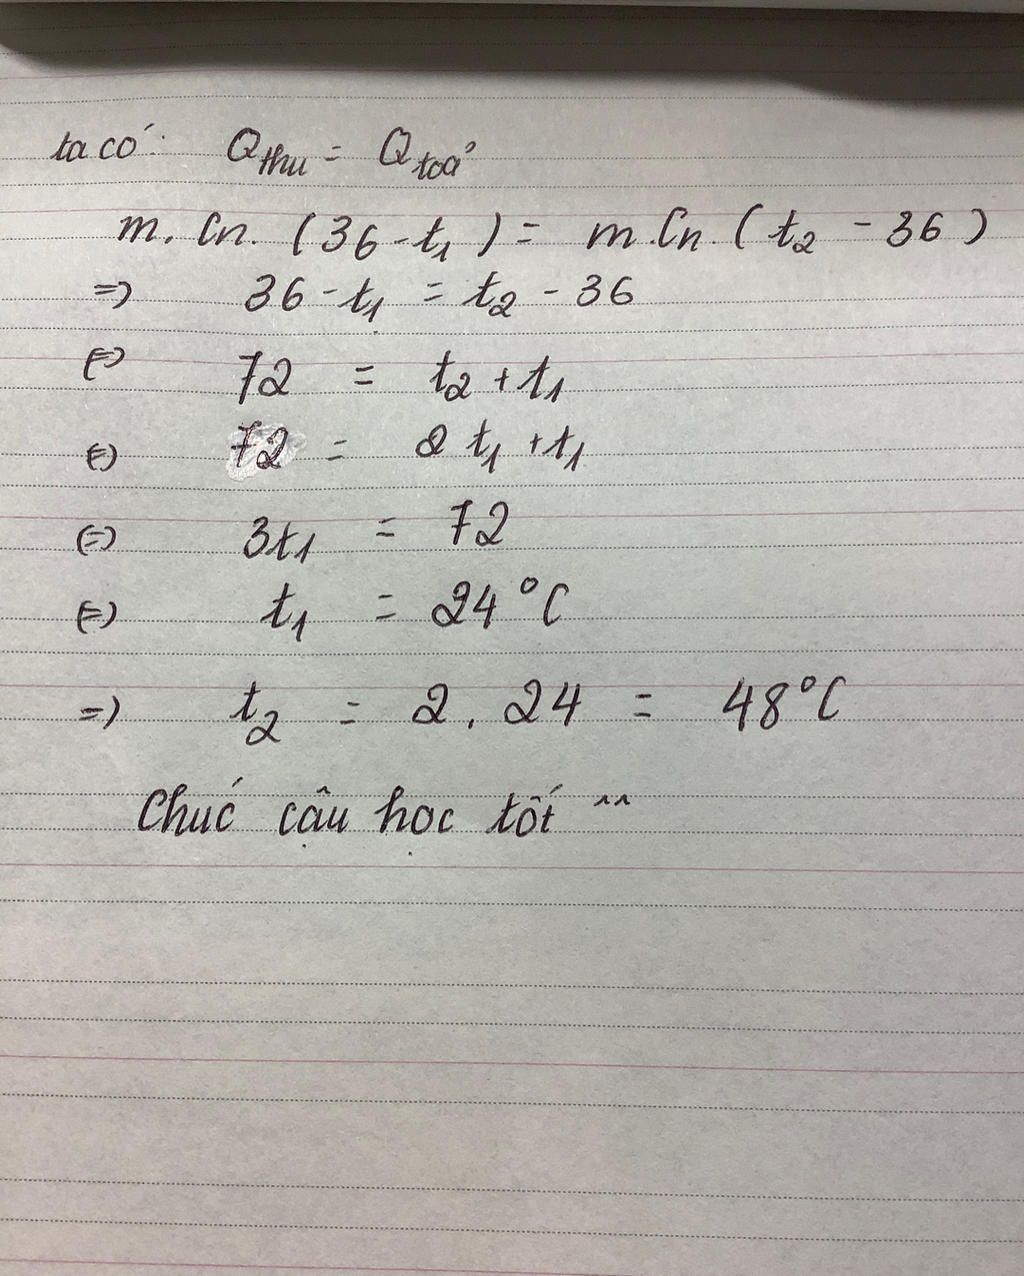 ta có: Q thu = Q toả
m. Cn. (36 - t1) = m.Cn. (t2 - 36)
=> 36 - t1 = t2 - 36
(=) 72 = t2 + t1
(=) 72 = 2 t1 + t1
(=) 3t1 = 72
(=) t1 = 24°C
=) t2 = 2 . 24 = 48°C
Chúc cậu học tốt ^^